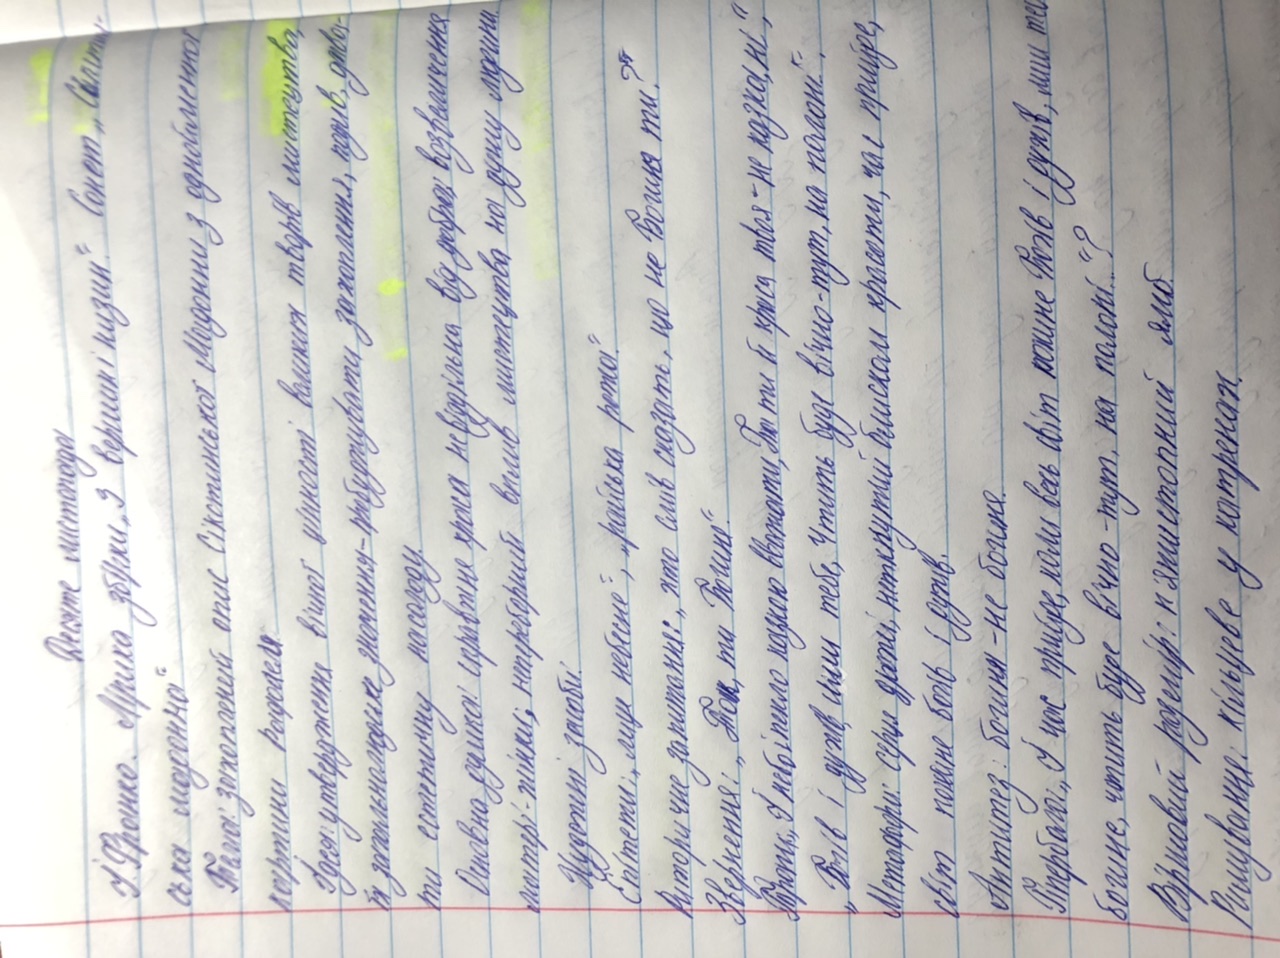 Десяте листопада
І Франко. Лірика збірки „З вершин і низин". Сонет „Сікстин-
ська мадонна"
Тема: захопливий опис Сікстинської Мадонни з однойменної
картини Рафаеля
Ідея: утвердження вічної цінності великих творів мистецтва,
їх загальнолюдське значення - пробуджувати захоплення, подив, дава-
ти естетичну насолоду
Основна думка: справжня краса невіддільна від добра; возвеличення
матері-жінки; непереборний вплив мистецтва на душу людини
Художні засоби:
Епітети: „лице небесне", „райська рожа"
Риторичне запитання: „хто смів сказать, що не богиня ти?"
Звернення: „Так, ти богиня"
„богів і духів, лиш тебе, чтить буде вічно - тут, на полотні".
Метафори: серце дрожі, неткнутий блиском красоти, час прийде,
світ покине богів і духів.
Антитеза: богиня - не богиня.
Гіпербола: „І час прийде, коли весь світ покине богів і духів, лиш тебе,
богине, чтить буде вічно - тут, на полотні"?
Віршовий розмір: п'ятистопний ямб
Римування: кільцеве у катренах.